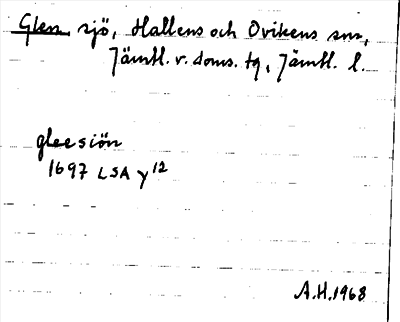 Glen, sjö, Hallens och Ovikens snr,
Jämtl. v. doms. tg, Jämtl. l.
gleesiön
1697 LSA y12
A.H. 1968